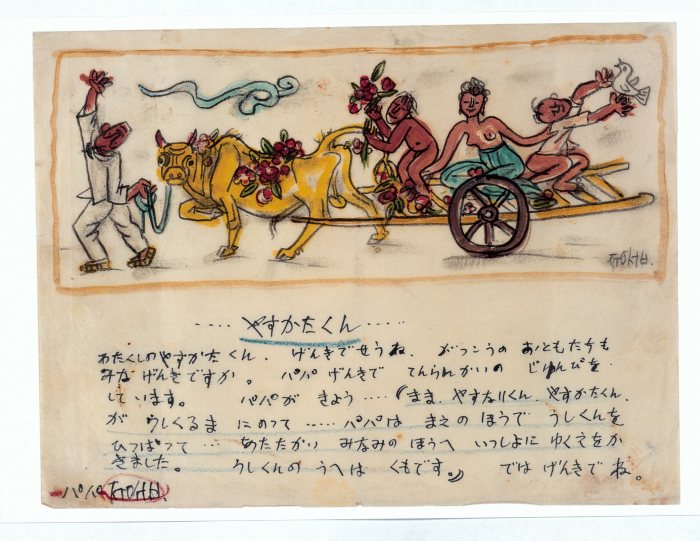 ㅈㅜㅇㅅㅓㅂ.
..... やすかたくん .....
わたくしのやすかたくん. げんきでせうね. がっこうの おともだちも
みな げんきですか。 パパ げんきで てんらんかいの じゅんびを
しています。 パパが きょう....(まま、やすなりくん、やすかたくん、
が うしくるま にのって ..... パパは まえの ほうで うしくんを
ひっぱって ... あたたかい みなみの ほうへ いっしょに ゆくえをか
きました。 うしくんの うへは くもです。) では げんきで ね。
パパ ㅈㅜㅇㅅㅓㅂ.